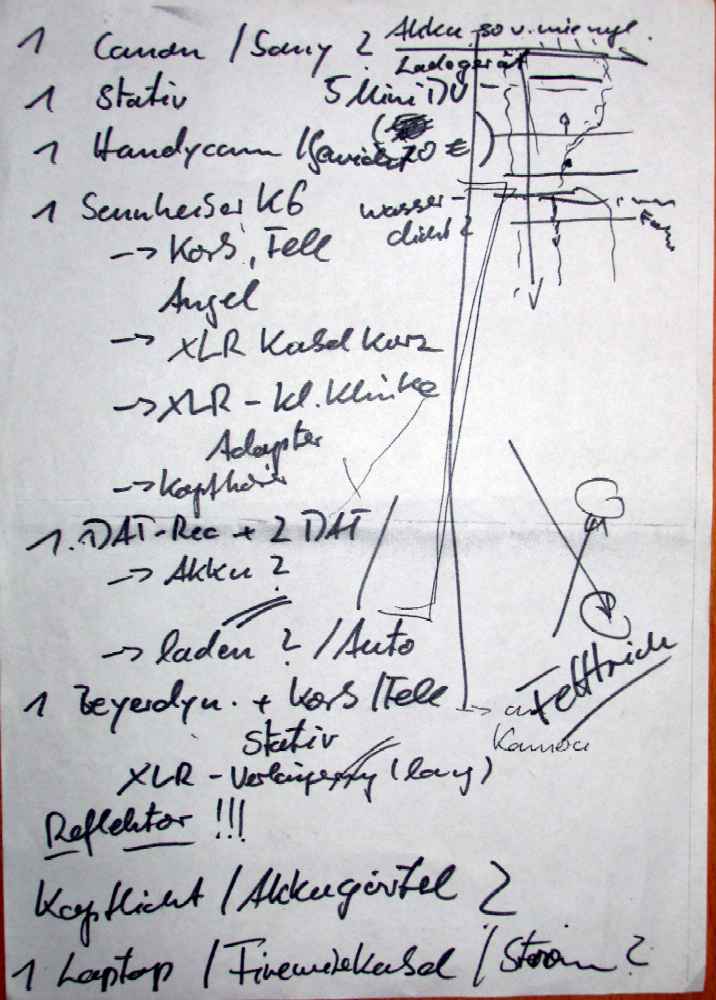 1 Canon / Sony ? Akku so v. wie mgl.
Ladegerät
1 Stativ 5 Mini DV
1 Handycam / 70 €
1 Sennheiser K6 wasser-
dicht ?
→ Korb, Fell
Angel
→ XLR Kabel kurz
→ XLR - kl. Klinke
Adapter
→ Kopfhörer
1 DAT-Rec + 2 DAT
→ Akku ?
→ laden ? / Auto
1 Beyerdyn. + Korb / Fell → an
Kamera
Stativ
XLR - Verlängerung (lang)
Reflektor !!!
Kopflicht / Akkugürtel ?
1 Laptop / Firewirekabel / Strom ?